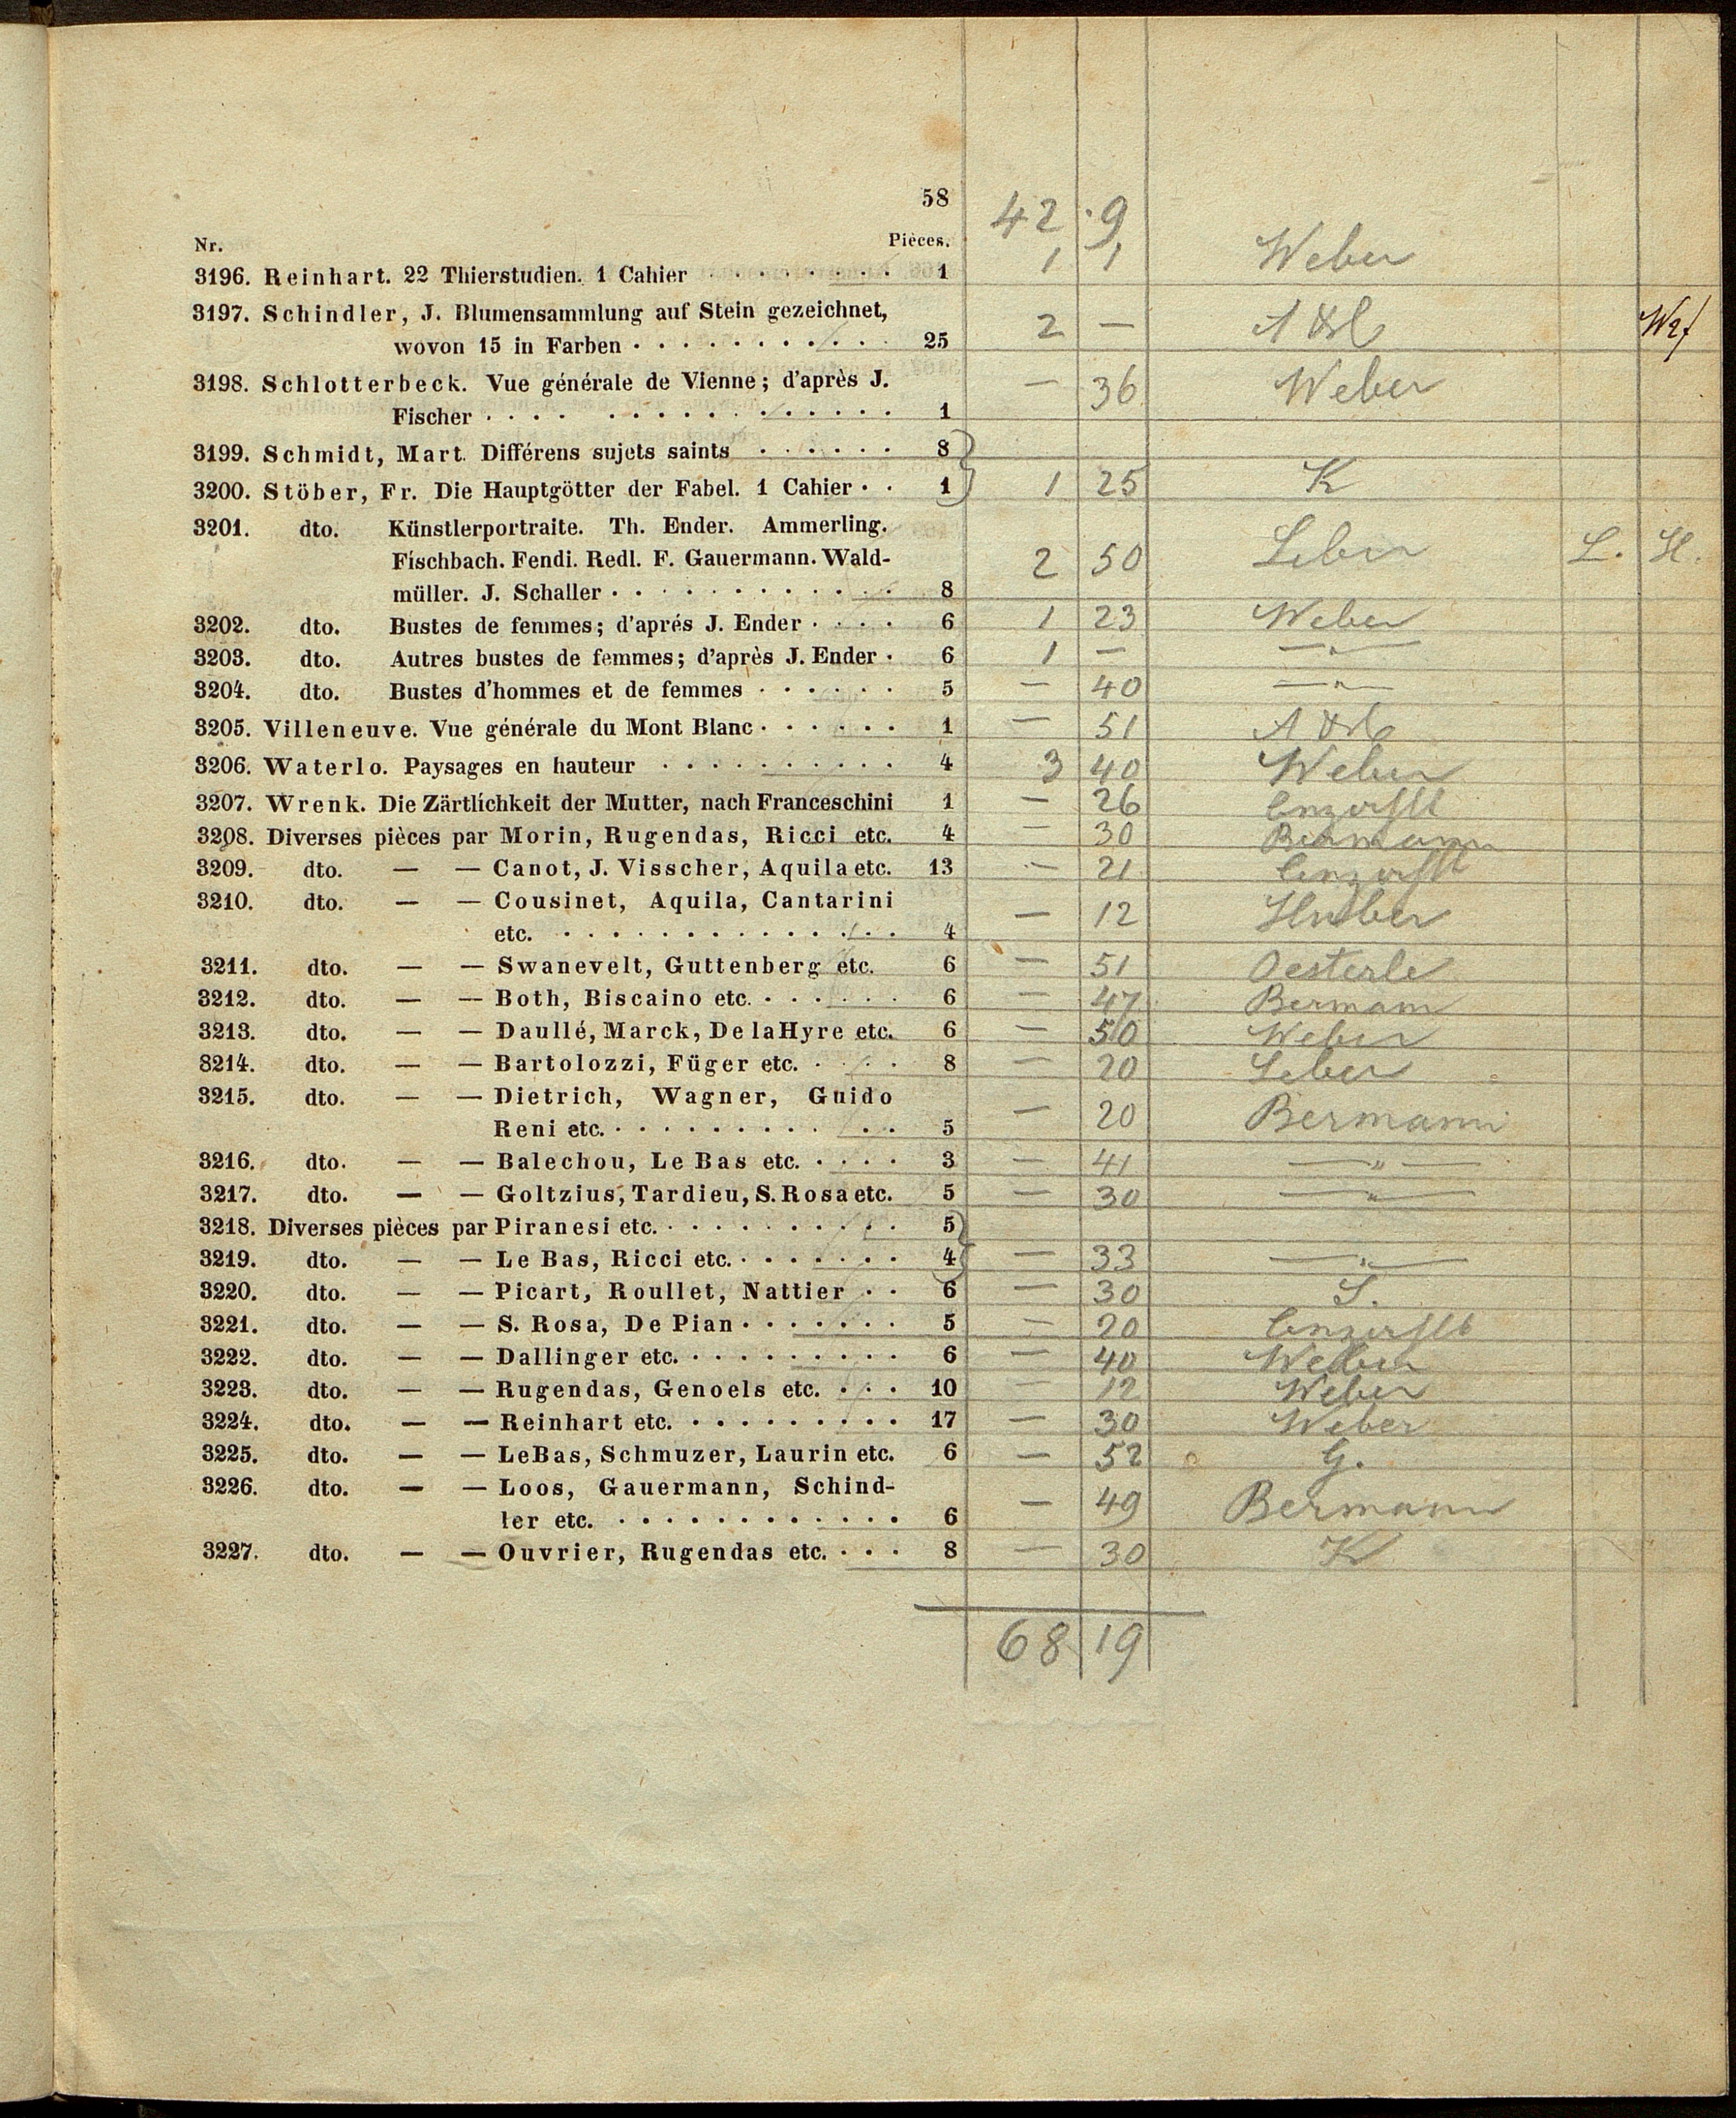 58
42 9
Nr. Pièces.
3196. Reinhart. 22 Thierstudien. 1 Cahier . . . . . . . . 1 1 1 Weber
3197. Schindler, J. Blumensammlung auf Stein gezeichnet,
wovon 15 in Farben . . . . . . . . . . . 25 2 —
3198. Schlotterbeck. Vue générale de Vienne; d'après J.
Fischer . . . . . . . . . . . . . . . . 1 — 36 Weber
3199. Schmidt, Mart. Différens sujets saints . . . . . . 8
3200. Stöber, Fr. Die Hauptgötter der Fabel. 1 Cahier . . 1 1 25 K
3201. dto. Künstlerportraite. Th. Ender. Ammerling.
Fischbach. Fendi. Redl. F. Gauermann. Wald-
müller. J. Schaller . . . . . . . . . . . . 8 2 50 Leber L. H.
3202. dto. Bustes de femmes; d'aprés J. Ender . . . . 6 1 23 Weber
3203. dto. Autres bustes de femmes; d'après J. Ender . 6 1 — —"—
3204. dto. Bustes d'hommes et de femmes . . . . . . 5 — 40 —"—
3205. Villeneuve. Vue générale du Mont Blanc . . . . . . 1 — 51
3206. Waterlo. Paysages en hauteur . . . . . . . . . . 4 3 40 Weber
3207. Wrenk. Die Zärtlichkeit der Mutter, nach Franceschini 1 — 26
3208. Diverses pièces par Morin, Rugendas, Ricci etc. 4 — 30 Bermann
3209. dto. — — Canot, J. Visscher, Aquila etc. 13 — 21
3210. dto. — — Cousinet, Aquila, Cantarini
etc. . . . . . . . . . . . . . . . 4 — 12 Huber
3211. dto. — — Swanevelt, Guttenberg etc. 6 — 51 Oesterle
3212. dto. — — Both, Biscaino etc. . . . . . . 6 — 47 Bermann
3213. dto. — — Daullé, Marck, De la Hyre etc. 6 — 50 Weber
8214. dto. — — Bartolozzi, Füger etc. . . . . 8 — 20 Leber
3215. dto. — — Dietrich, Wagner, Guido
Reni etc. . . . . . . . . . . . . 5 — 20 Bermann
3216. dto. — — Balechou, Le Bas etc. . . . . 3 — 41 —"—
3217. dto. — — Goltzius, Tardieu, S. Rosa etc. 5 — 30 —"—
3218. Diverses pièces par Piranesi etc. . . . . . . . . . . 5
3219. dto. — — Le Bas, Ricci etc. . . . . . . . 4 — 33 —"—
3220. dto. — — Picart, Roullet, Nattier . . 6 — 30 S.
3221. dto. — — S. Rosa, De Pian . . . . . . . 5 — 20
3222. dto. — — Dallinger etc. . . . . . . . . . 6 — 40 Weber
3223. dto. — — Rugendas, Genoels etc. . . . 10 — 12 Weber
3224. dto. — — Reinhart etc. . . . . . . . . . 17 — 30 Weber
3225. dto. — — Le Bas, Schmuzer, Laurin etc. 6 — 52 G.
3226. dto. — — Loos, Gauermann, Schind-
ler etc. . . . . . . . . . . . . . 6 — 49 Bermann
3227. dto. — — Ouvrier, Rugendas etc. . . . 8 — 30 K
68 19